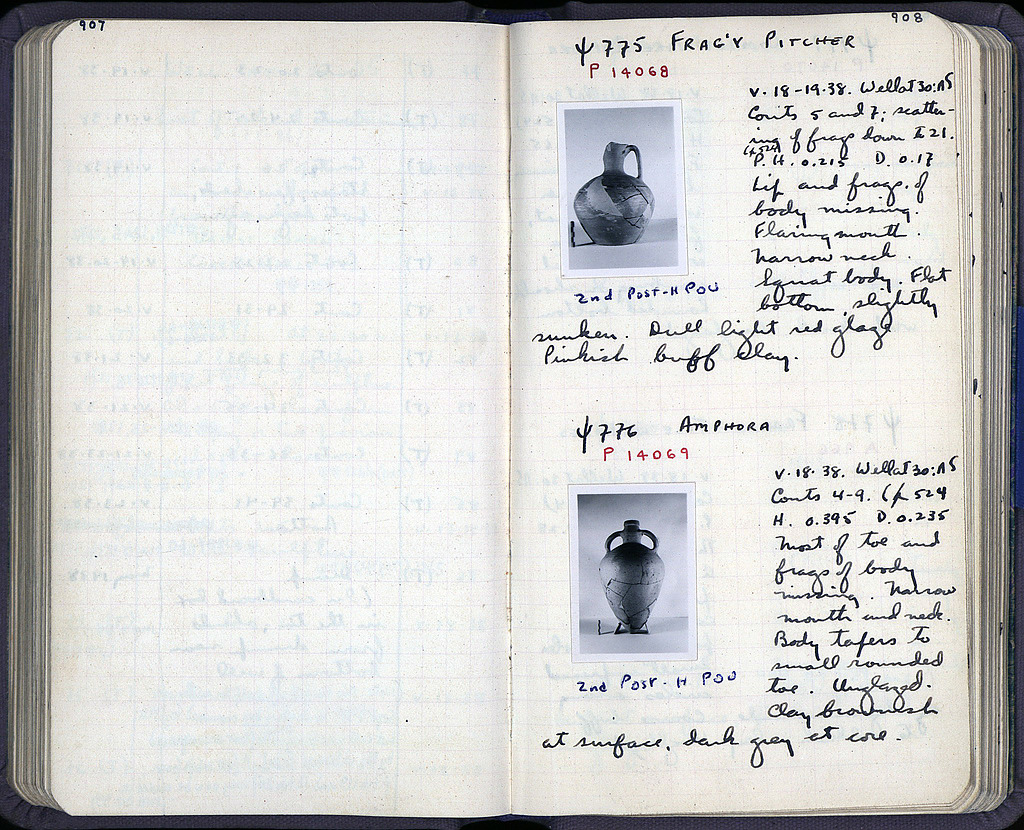 907
908
Ψ 775 FRAG'Y PITCHER
P 14068
V-18-19-38. Well at 30:ΛΕ
Conts 5 and 7; scatter-
ing of frags down to 21.
(p.524)
P.H. 0.215 D. 0.17
Lip and frags. of
body missing.
Flaring mouth.
Narrow neck.
Squat body. Flat
bottom, slightly
sunken. Dull light red glaze
Pinkish buff clay.
2nd Post-H POU
Ψ 776 AMPHORA
P 14069
V-18-38. Well at 30:ΛΕ
Conts 4-9. (p. 524
H. 0.395 D. 0.235
Most of toe and
frags of body
missing. Narrow
mouth and neck.
Body tapers to
small rounded
toe. Unglazed.
Clay brownish
at surface, dark grey at core.
2nd Post-H POU